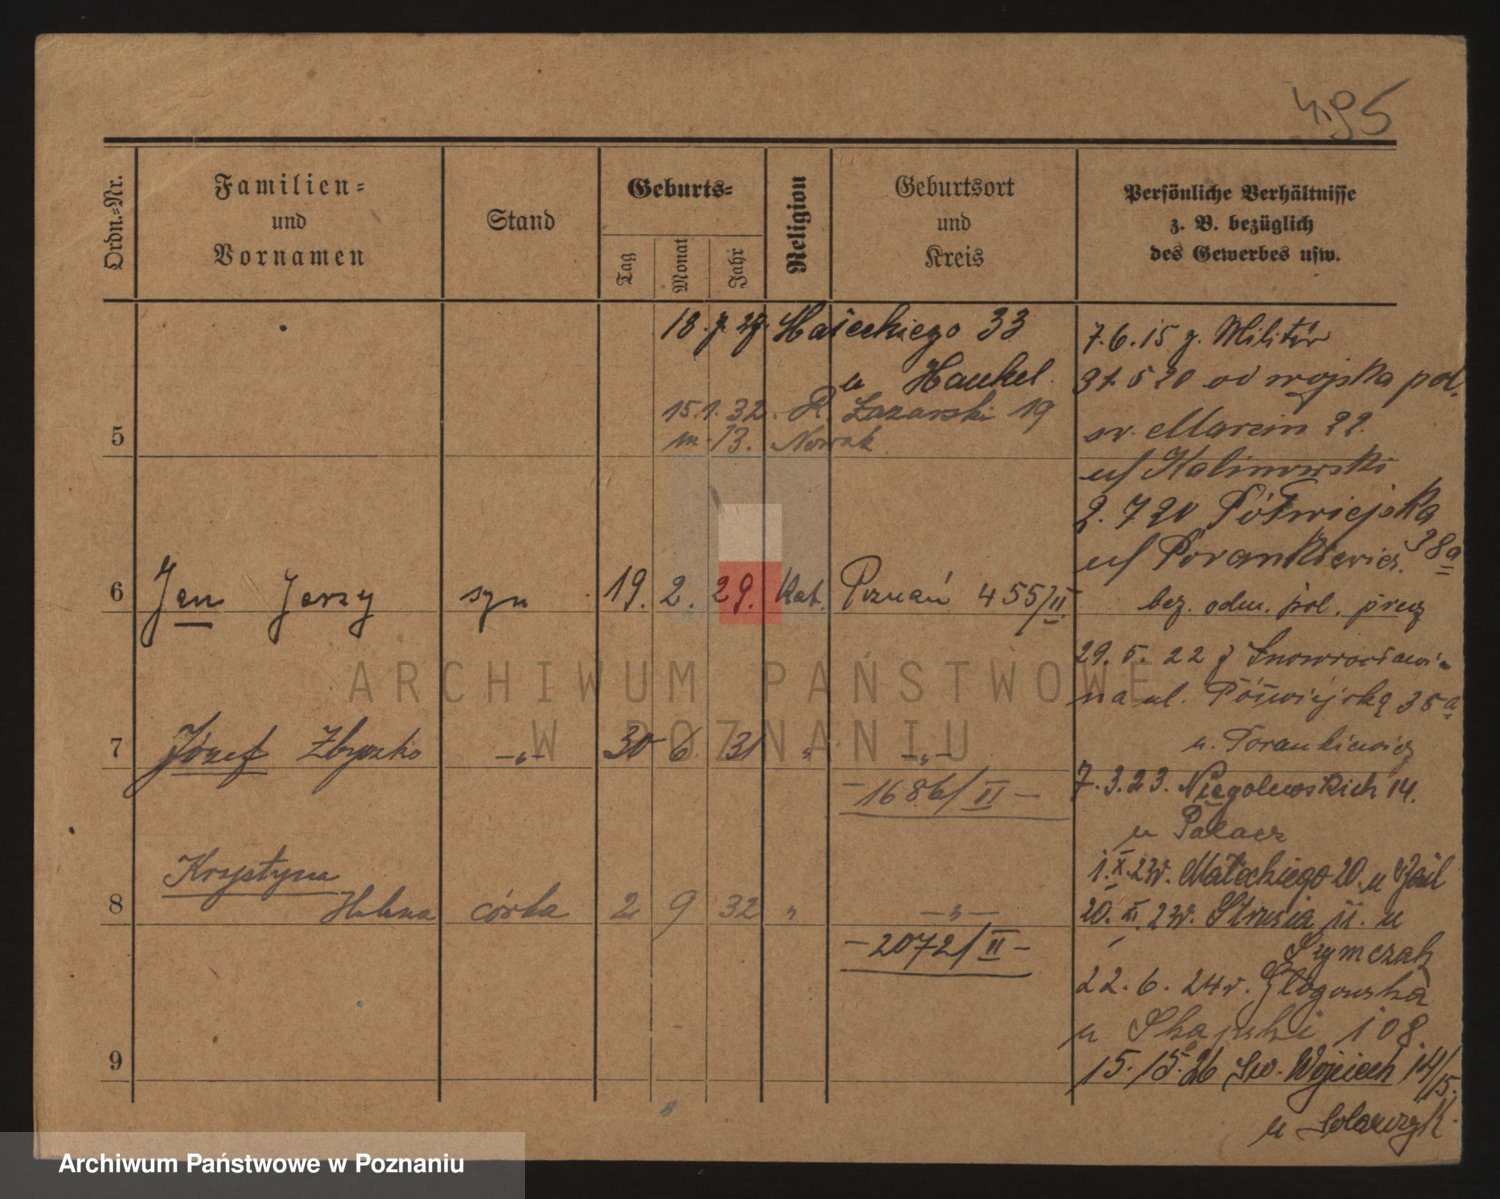 495
Ordn.-Nr.
Familien-
und
Vornamen
Stand
Geburts-
Tag
Monat
Jahr
Religion
Geburtsort
und
Kreis
Persönliche Verhältnisse
z. B. bezüglich
des Gewerbes usw.
18. 7. 29. 33
u Haukel.
15.1.32. R. Łazarski 19
m. 13. Nowak
5
6
Jan Jerzy syn 19. 2. 29. Kat. Poznań 455/II
7
Józef Zbyszko -„- 30 6 31 „ -„-
-1686/II-
8
Krystyna
Helena córka 2 9 32 „ -„-
-2072/II-
9
7.6.15 z. Militär
31.5 20 od wojska pol.
św. Marcin 22.
u/ Kalinowski
2. 7 20 Półwiejska
38a
u/ Porankiewicz.
bez. odm. pol.
29. 5. 22 z Inowrocławia
na ul. Półwiejską 35a
u. Porankiewicz
7. 3. 23. Niegolewskich 14.
u Palacz
1. X. 23r. Małeckiego 20. u
20. XI. 23r. Strusia 11. u
Szymczak
22. 6. 24r. Głogowska
u 108.
15. 26 św. Wojciech 14/15.
u
ARCHIWUM PAŃSTWOWE
W POZNANIU
Archiwum Państwowe w Poznaniu